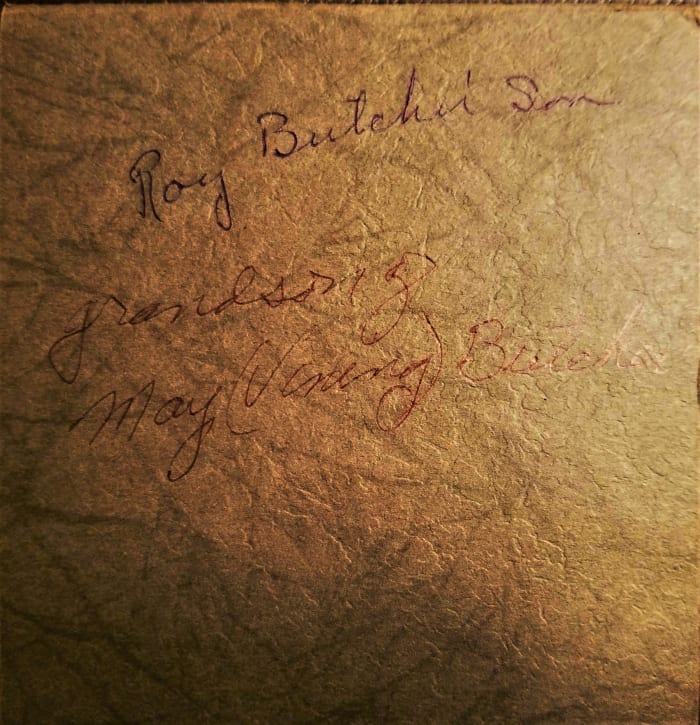 Roy Butcher Son
grandson of
May (Vining) Butcher